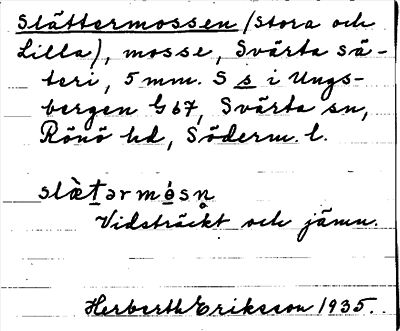 Slättermossen (Stora och
Lilla), mosse, Svärta sä-
teri, 5 mm. S s i Ungs-
bergen G 67, Svärta sn,
Rönö hd, Söderm. l.
slæ̀tərmósn̥
Vidsträckt och jämn.
Herberth Eriksson 1935.